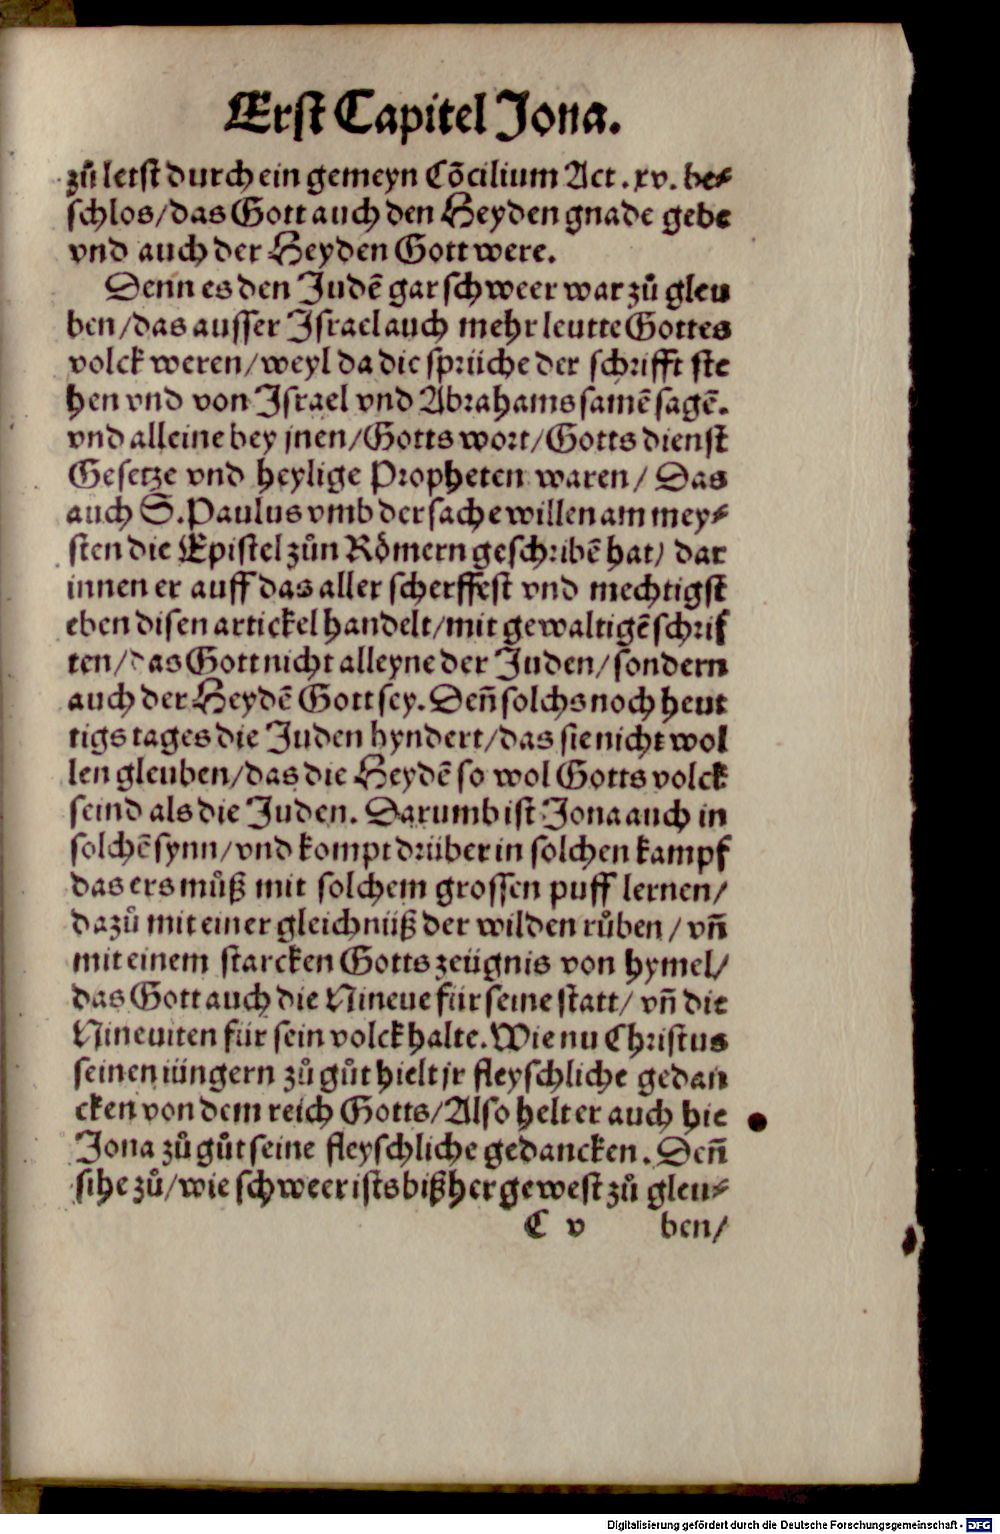 Erst Capitel Jona.
zů letst durch ein gemeyn Cõcilium Act. xv. be⸗
schlos/das Gott auch den Heyden gnade gebe
vnd auch der Heyden Gott were.
Denn es den Judẽ gar schweer war zů gleu
ben/das ausser Israel auch mehr leutte Gottes
volck weren/weyl da die sprüche der schrifft ste
hen vnd von Israel vnd Abrahams samẽ sagẽ.
vnd alleine bey jnen/Gotts wort/Gotts dienst
Gesetze vnd heylige Propheten waren/ Das
auch S. Paulus vmb der sache willen am mey⸗
sten die Epistel zůn Römern geschribẽ hat/ dar
innen er auff das aller scherffest vnd mechtigst
eben disen artickel handelt/mit gewaltigẽ schrif
ten/das Gott nicht alleyne der Juden/sondern
auch der Heydẽ Gott sey. Deñ solchs noch heut
tigs tages die Juden hyndert/das sie nicht wol
len gleuben/das die Heydẽ so wol Gotts volck
seind als die Juden. Darumb ist Jona auch in
solchẽ synn/vnd kompt drüber in solchen kampf
das ers můß mit solchem grossen puff lernen/
dazů mit einer gleichnüß der wilden růben/ vñ
mit einem starcken Gotts zeügnis von hymel/
das Gott auch die Nineue für seine statt/ vñ die
Nineuiten für sein volck halte. Wie nu Christus
seinen jüngern zů gůt hielt jr fleyschliche gedan
cken von dem reich Gotts/Also helt er auch hie
Jona zů gůt seine fleyschliche gedancken. Deñ
sihe zů/wie schweer ists bißher gewest zů gleu⸗
C v ben/
Digitalisierung gefördert durch die Deutsche Forschungsgemeinschaft - DFG